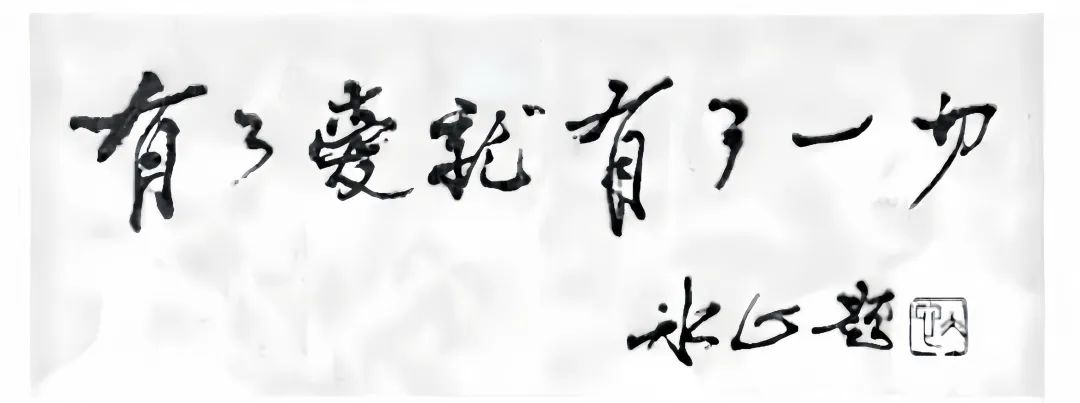 有了愛就有了一切
冰心題